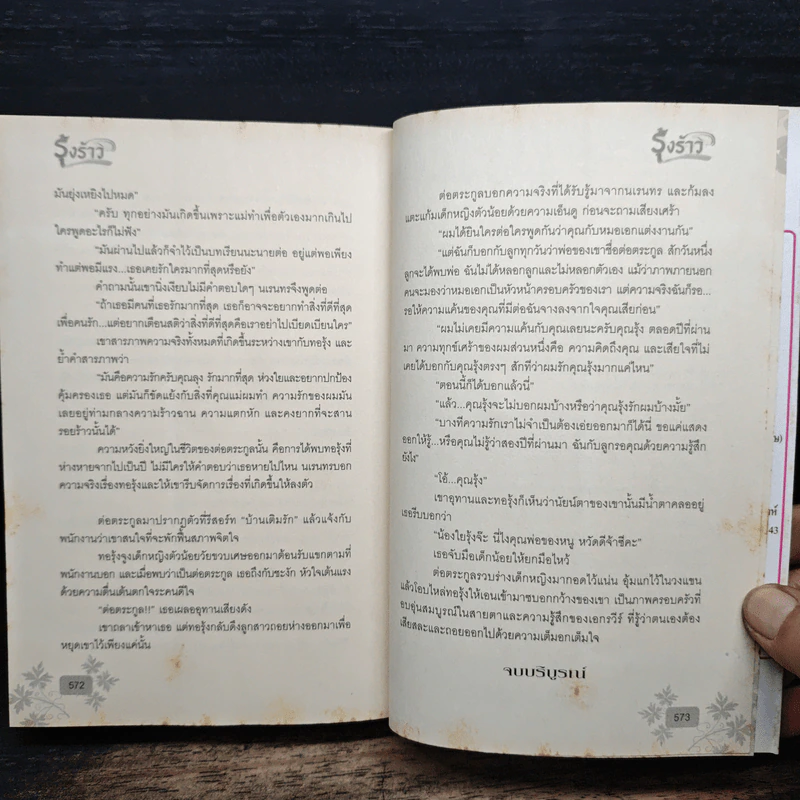 รุ้งร้าว
มันยุ่งเหยิงไปหมด"
"ครับ ทุกอย่างมันเกิดขึ้นเพราะแม่ทำเพื่อตัวเองมากเกินไป
ใครพูดอะไรก็ไม่ฟัง"
"มันผ่านไปแล้วก็จำไว้เป็นบทเรียนนะนายต่อ อยู่แต่พอเพียง
ทำแต่พอมีแรง...เธอเคยรักใครมากที่สุดหรือยัง"
คำถามนั้นเขานิ่งเงียบไม่มีคำตอบใดๆ นเรนทรจึงพูดต่อ
"ถ้าเธอมีคนที่เธอรักมากที่สุด เธอก็อาจจะอยากทำสิ่งที่ดีที่สุด
เพื่อคนรัก...แต่อยากเตือนสติว่าสิ่งที่ดีที่สุดคือเราอย่าไปเบียดเบียนใคร"
เขาสารภาพความจริงทั้งหมดที่เกิดขึ้นระหว่างเขากับทอรุ้ง และ
ย้ำคำสารภาพว่า
"มันคือความรักครับคุณลุง รักมากที่สุด ห่วงใยและอยากปกป้อง
คุ้มครองเธอ แต่มันก็ขัดแย้งกับสิ่งที่คุณแม่ผมทำ ความรักของผมมัน
เลยอยู่ท่ามกลางความร้าวฉาน ความแตกหัก และคงยากที่จะสาน
รอยร้าวนั้นได้"
ความหวังยิ่งใหญ่ในชีวิตของต่อตระกูลนั้น คือการได้พบทอรุ้งที่
ห่างหายจากไปเป็นปี ไม่มีใครให้คำตอบว่าเธอหายไปไหน นเรนทรบอก
ความจริงเรื่องทอรุ้งและให้เขารีบจัดการเรื่องที่เกิดขึ้นให้ลงตัว
ต่อตระกูลมาปรากฏตัวที่รีสอร์ท "บ้านเติมรัก" แล้วแจ้งกับ
พนักงานว่าเขาสนใจที่จะพักฟื้นสภาพจิตใจ
ทอรุ้งจูงเด็กหญิงตัวน้อยวัยขวบเศษออกมาต้อนรับแขกตามที่
พนักงานบอก และเมื่อพบว่าเป็นต่อตระกูล เธอถึงกับชะงัก หัวใจเต้นแรง
ด้วยความตื่นเต้นตกใจระคนดีใจ
"ต่อตระกูล!!" เธอเผลออุทานเสียงดัง
เขาถลาเข้าหาเธอ แต่ทอรุ้งกลับดึงลูกสาวถอยห่างออกมาเพื่อ
หยุดเขาไว้เพียงแค่นั้น
572
รุ้งร้าว
ต่อตระกูลบอกความจริงที่ได้รับรู้มาจากนเรนทร และก้มลง
แตะแก้มเด็กหญิงตัวน้อยด้วยความเอ็นดู ก่อนจะถามเสียงเศร้า
"ผมได้ยินใครต่อใครพูดกันว่าคุณกับหมอเอกแต่งงานกัน"
"แต่ฉันก็บอกกับลูกทุกวันว่าพ่อของเขาชื่อต่อตระกูล สักวันหนึ่ง
ลูกจะได้พบพ่อ ฉันไม่ได้หลอกลูกและไม่หลอกตัวเอง แม้ว่าภาพภายนอก
คนจะมองว่าหมอเอกเป็นหัวหน้าครอบครัวของเรา แต่ความจริงฉันก็รอ...
รอให้ความแค้นของคุณที่มีต่อฉันจางลงจากใจคุณเสียก่อน"
"ผมไม่เคยมีความแค้นกับคุณเลยนะครับคุณรุ้ง ตลอดปีที่ผ่าน
มา ความทุกข์เศร้าของผมส่วนหนึ่งคือ ความคิดถึงคุณ และเสียใจที่ไม่
เคยได้บอกกับคุณรุ้งตรงๆ สักทีว่าผมรักคุณรุ้งมากแค่ไหน"
"ตอนนี้ก็ได้บอกแล้วนี่"
"แล้ว...คุณรุ้งจะไม่บอกผมบ้างหรือว่าคุณรุ้งรักผมบ้างมั้ย"
"บางทีความรักเราไม่จำเป็นต้องเอ่ยออกมาก็ได้นี่ ขอแค่แสดง
ออกให้รู้...หรือคุณไม่รู้ว่าสองปีที่ผ่านมา ฉันกับลูกรอคุณด้วยความรู้สึก
ยังไง"
"โอ้...คุณรุ้ง"
เขาอุทานและทอรุ้งก็เห็นว่านัยน์ตาของเขานั้นมีน้ำตาคลออยู่
เธอรีบบอกว่า
"น้องใยรุ้งจ๊ะ นี่ไงคุณพ่อของหนู หวัดดีจ้าซีคะ"
เธอจับมือเด็กน้อยให้ยกมือไหว้
ต่อตระกูลรวบร่างเด็กหญิงมากอดไว้แน่น อุ้มแกไว้ในวงแขน
แล้วโอบไหล่ทอรุ้งให้เอนเข้ามาซบอกกว้างของเขา เป็นภาพครอบครัวที่
อบอุ่นสมบูรณ์ในสายตาและความรู้สึกของเอกรวีร์ ที่รู้ว่าตนเองต้อง
เสียสละและถอยออกไปด้วยความเต็มอกเต็มใจ
จบบริบูรณ์
573
43